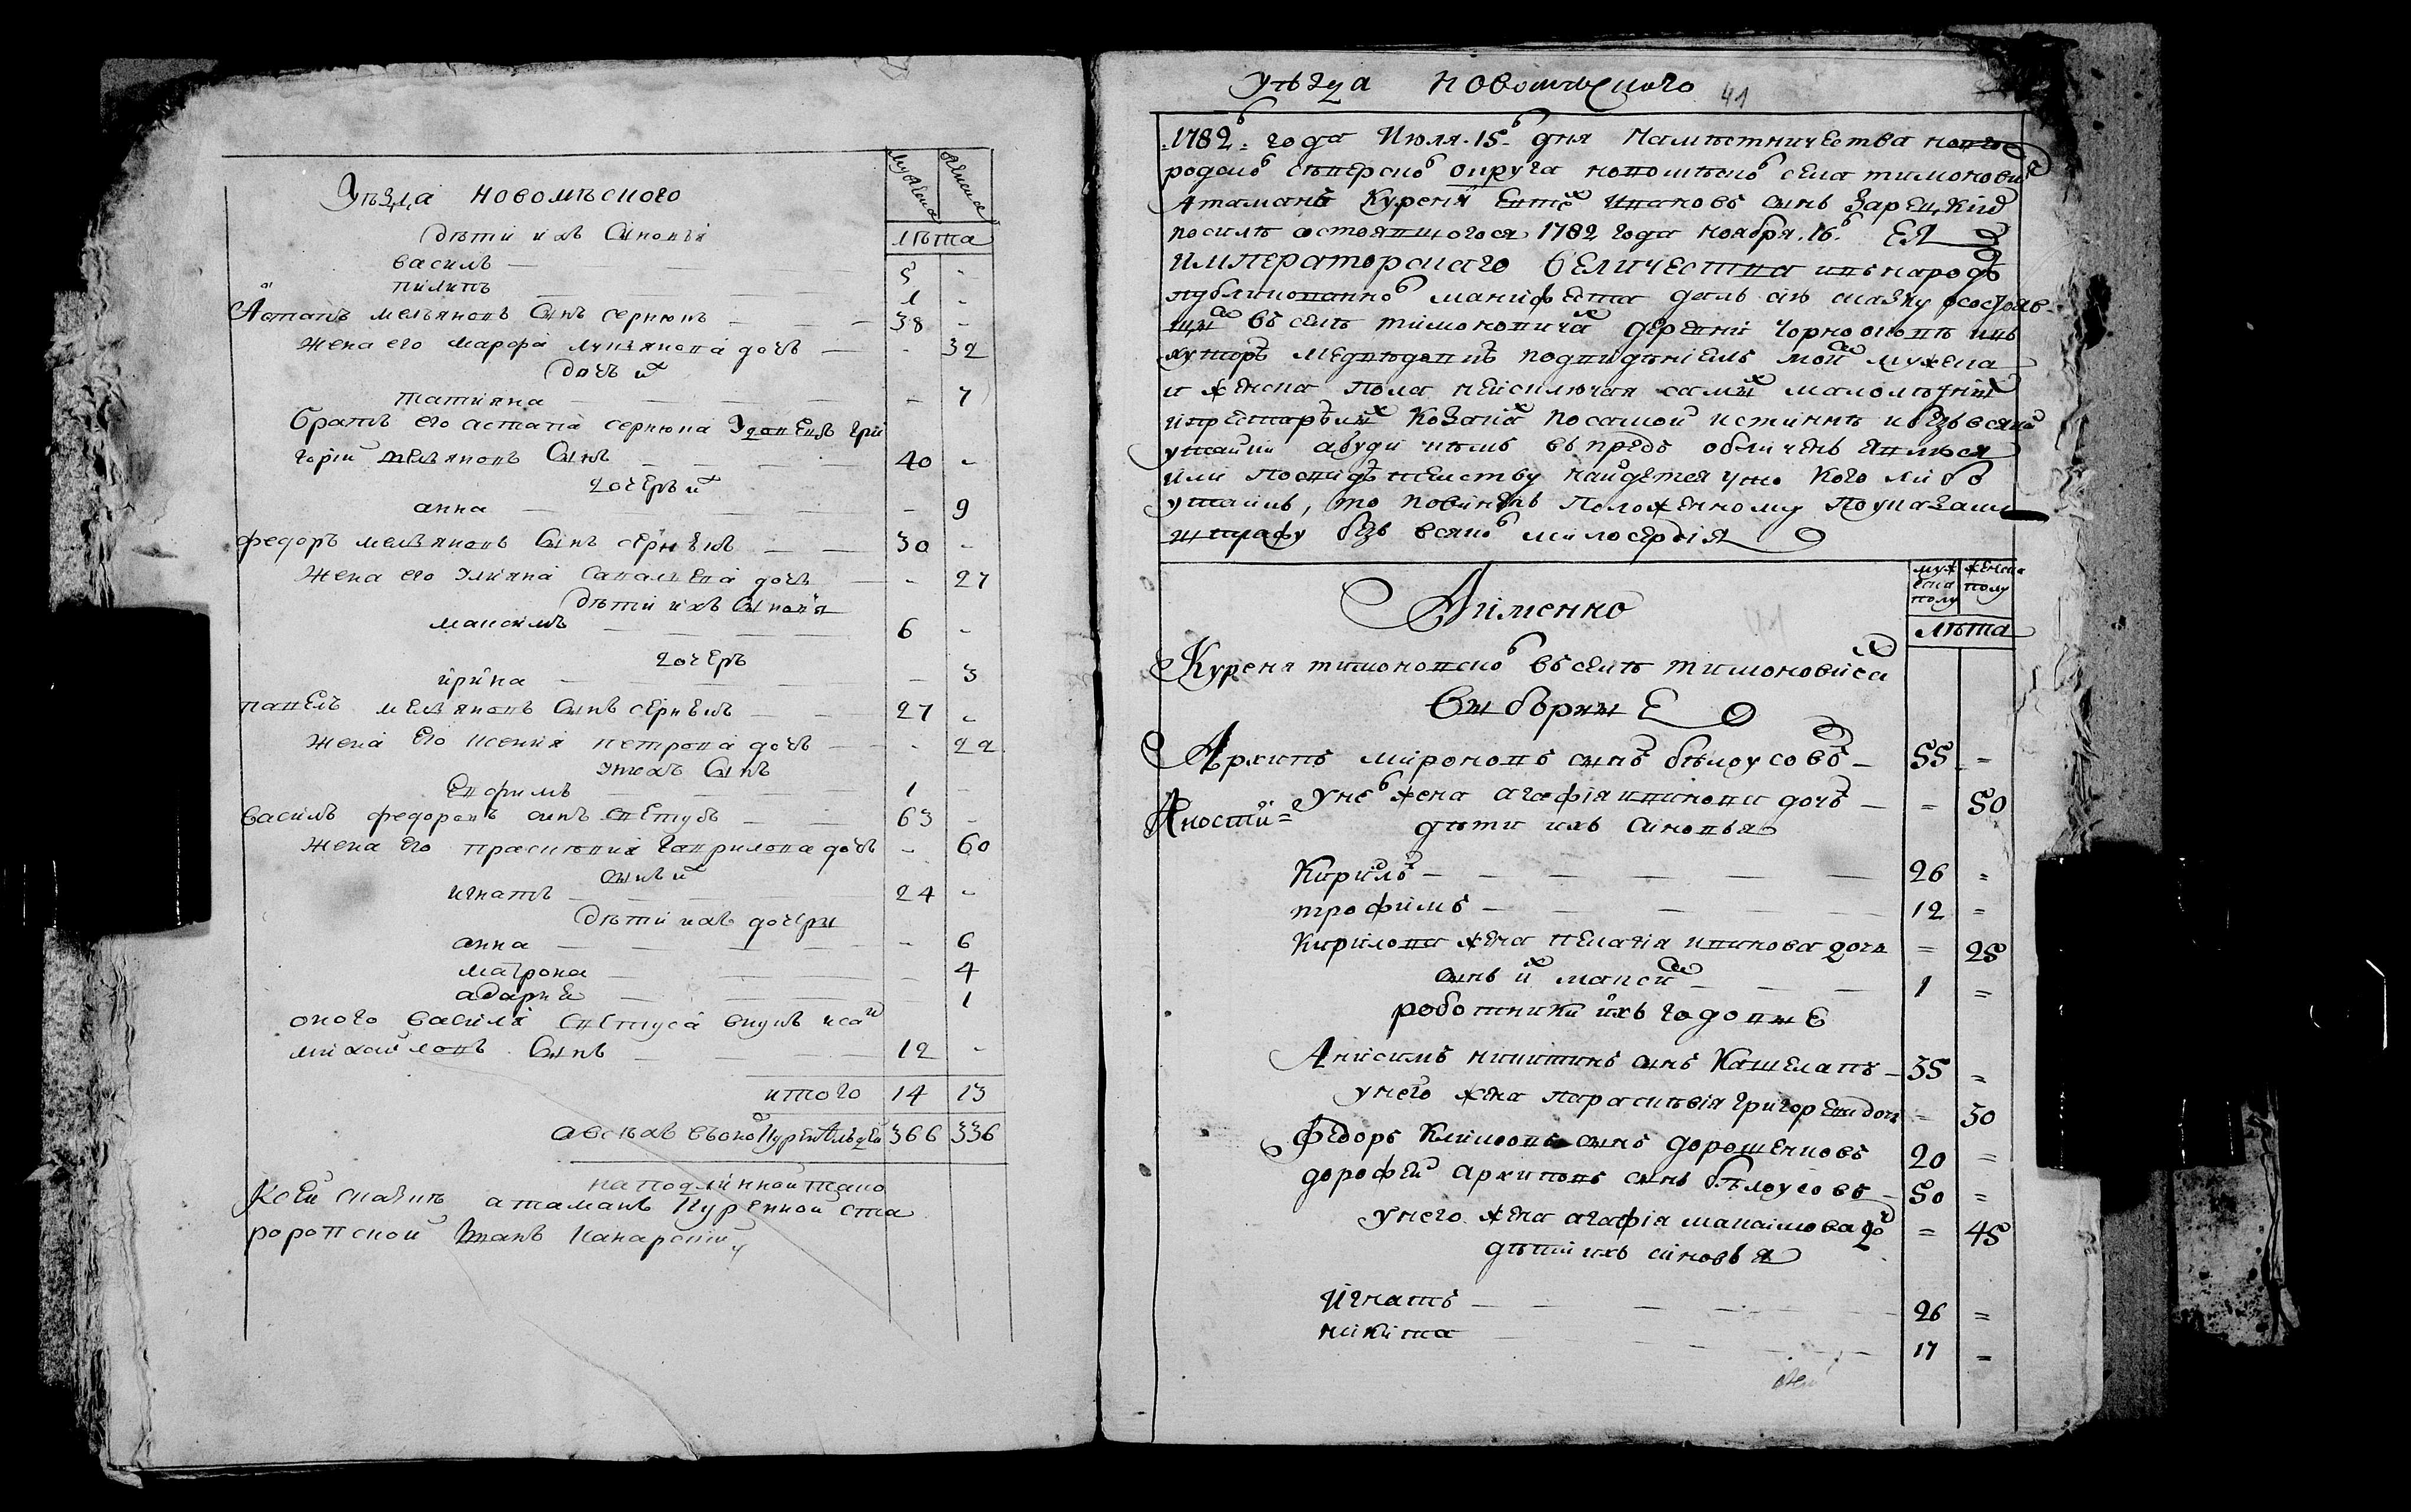 Уѣзда новомѣского
мужеска женска
лѣта
дѣти ихъ синовья
василь — 5 -
пилипъ 1 -
Астапъ мельяновъ синъ сернюкъ — 38 -
жена его марфа лукъянова дочь — - 32
дочь их
татияна - 7
братъ его астапа сернюка Удовецъ гри
горий мельяновъ синъ 40 -
дочерь их
анна — - 9
федоръ мельяновъ синъ 30 -
жена его улияна дочь — - 27
дѣти ихъ синовья
максимъ 6 -
дочеръ
ирина — - 3
павелъ мельяновъ синъ 27 -
жена его ксения петрова дочь — - 22
унихъ синъ
Евфимъ 1 -
василь федоровъ синъ 63 -
жена его прасковия гаврилова дочь - 60
синъ их
игнатъ 24 -
дѣти ихъ дочери
анна — - 6
матрона — 4
одария — 1
оного василя внукъ исай
михайловъ синъ 12 -
итого 14 13
авсехъ въоной 366 336
наподлинной тако
Ксей сказки атаманъ куренной ста
роропской Канарский
уѣзда новомѣского 41
1782: года Июля 15г дня намѣстничества новго
родског сѣверског округа новомѣског села тимонови
Атаманъ Куреня Ивановъ синъ Зарецкий
посилѣ состоявшогося 1782 года ноября 16г ЕЯ
императорскаго величества ивънародъ
публикованног манифеста далъ сию сказку осостояв-
щих въселѣ тимоновичах деревни чорнооковѣ ивъ
хуторѣ подвидениемъ моим мужеска
и женска пола неисключая самих малолѣтних
ипрестарѣлих козаках посамой истиннѣ ибезъвсякой
утайки абуди чемъ въпредь обличенъ явлюся
или посвидетелству найдется что кого либо
утаилъ, то повиненъ положенному поуказам
штрафу безъ всяког милосердия
Аименно
мужеска полу женска полу
лѣта
Куреня тимоновског въселѣ тимоновичах
Виборние
Архипъ мироновъ синъ бѣлоусовъ — 55 =
унег жена агафия иванова дочь — = 50
дѣти ихъ синовья
Кирилъ — 26 =
трофимъ — 12 =
Кирилова жена пелагия иванова дочь = 25
синъ их максим — 1 =
роботники ихъ годовие
Анисимъ никитинъ синъ Кашелапъ — 35 =
унего жена парасковия григорева дочь = 30
Федоръ Климовъ синъ дорошенковъ 20 =
дорофей архиповъ синъ бѣлоусовъ — 50 =
унего жена агафия максимова доч = 45
дѣти ихъ синовья
Игнатъ — 26 =
никита — 17 =